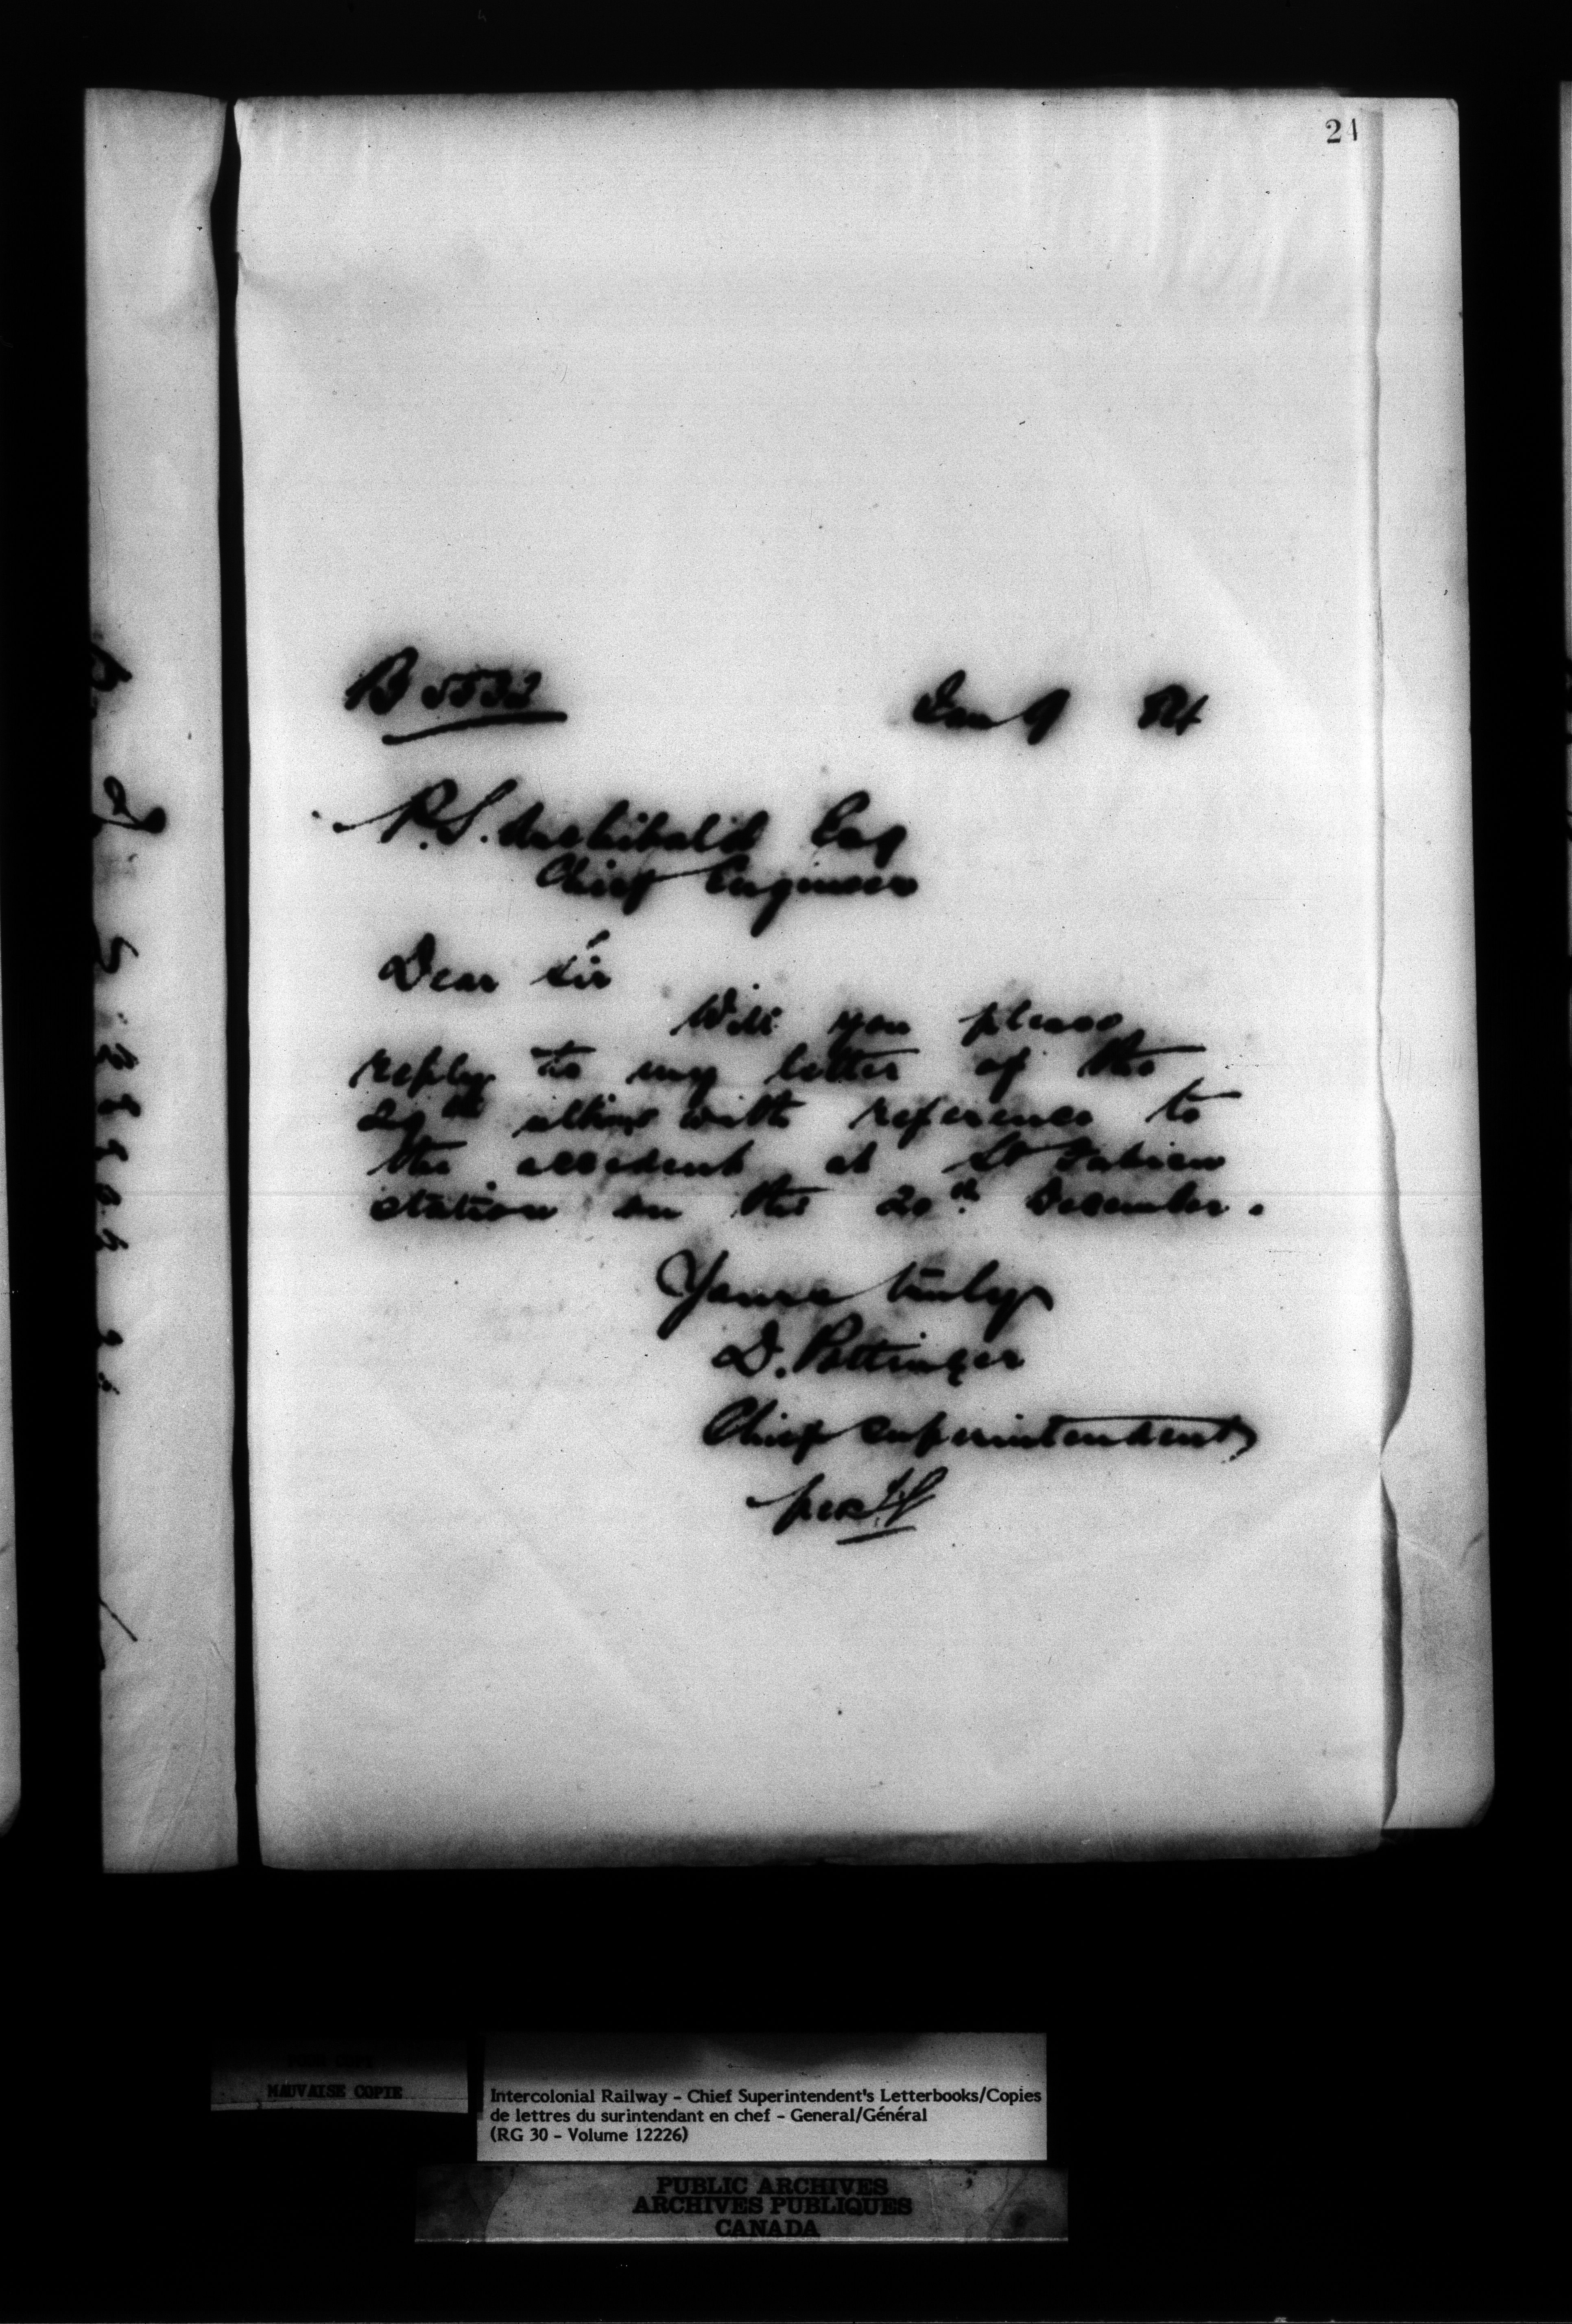 21
B 5532
Jan 9 84
P.S. Archibald Esq
Chief Engineer
Dear Sir
Will you please
reply to my letter of the
29th ultimo with reference to
the accident at St Fabien
station on the 20th December.
Yours truly
D. Pottinger
Chief Superintendent
per
MAUVAISE COPIE
Intercolonial Railway - Chief Superintendent's Letterbooks/Copies
de lettres du surintendant en chef - General/Général
(RG 30 - Volume 12226)
PUBLIC ARCHIVES
ARCHIVES PUBLIQUES
CANADA